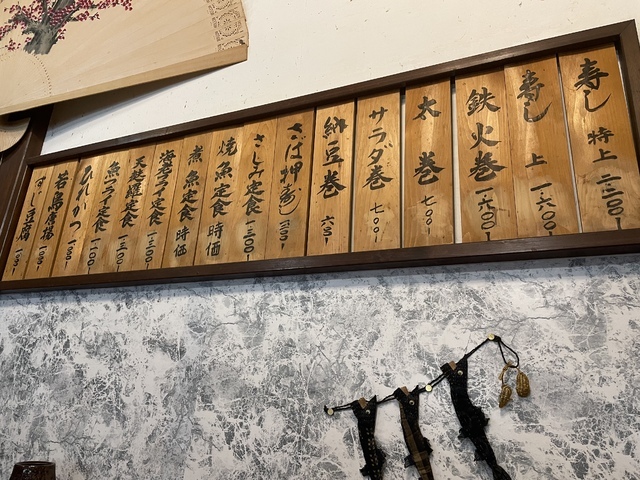 寿し 特上 二二〇〇
寿し 上 一六〇〇
鉄火巻 一六〇〇
太巻 七〇〇
サラダ巻 七〇〇
納豆巻 六五〇
さば押寿し
さしみ定食 一三〇〇
焼魚定食 時価
煮魚定食 時価
海老フライ定食 一三〇〇
天麩羅定食 一三〇〇
魚フライ定食 一一〇〇
ひれかつ
若鳥唐揚
豆腐